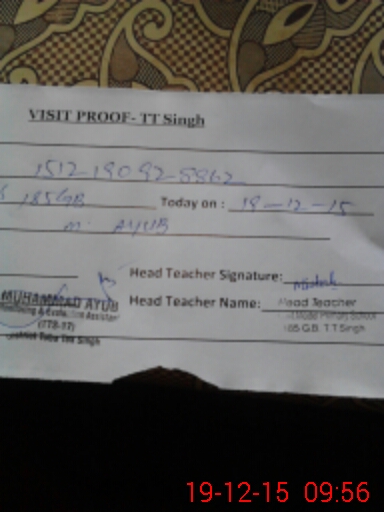 VISIT PROOF- TT Singh
185GB Today on : 18-12-15
M. AYUB
Head Teacher Signature:
MUHAMMAD AYUB Head Teacher Name: Head Teacher
Monitoring & Evaluation Assistant Model Primary School
(TTB-37) 185 G.B. T.T Singh
District Toba Tek Singh
19-12-15 09:56